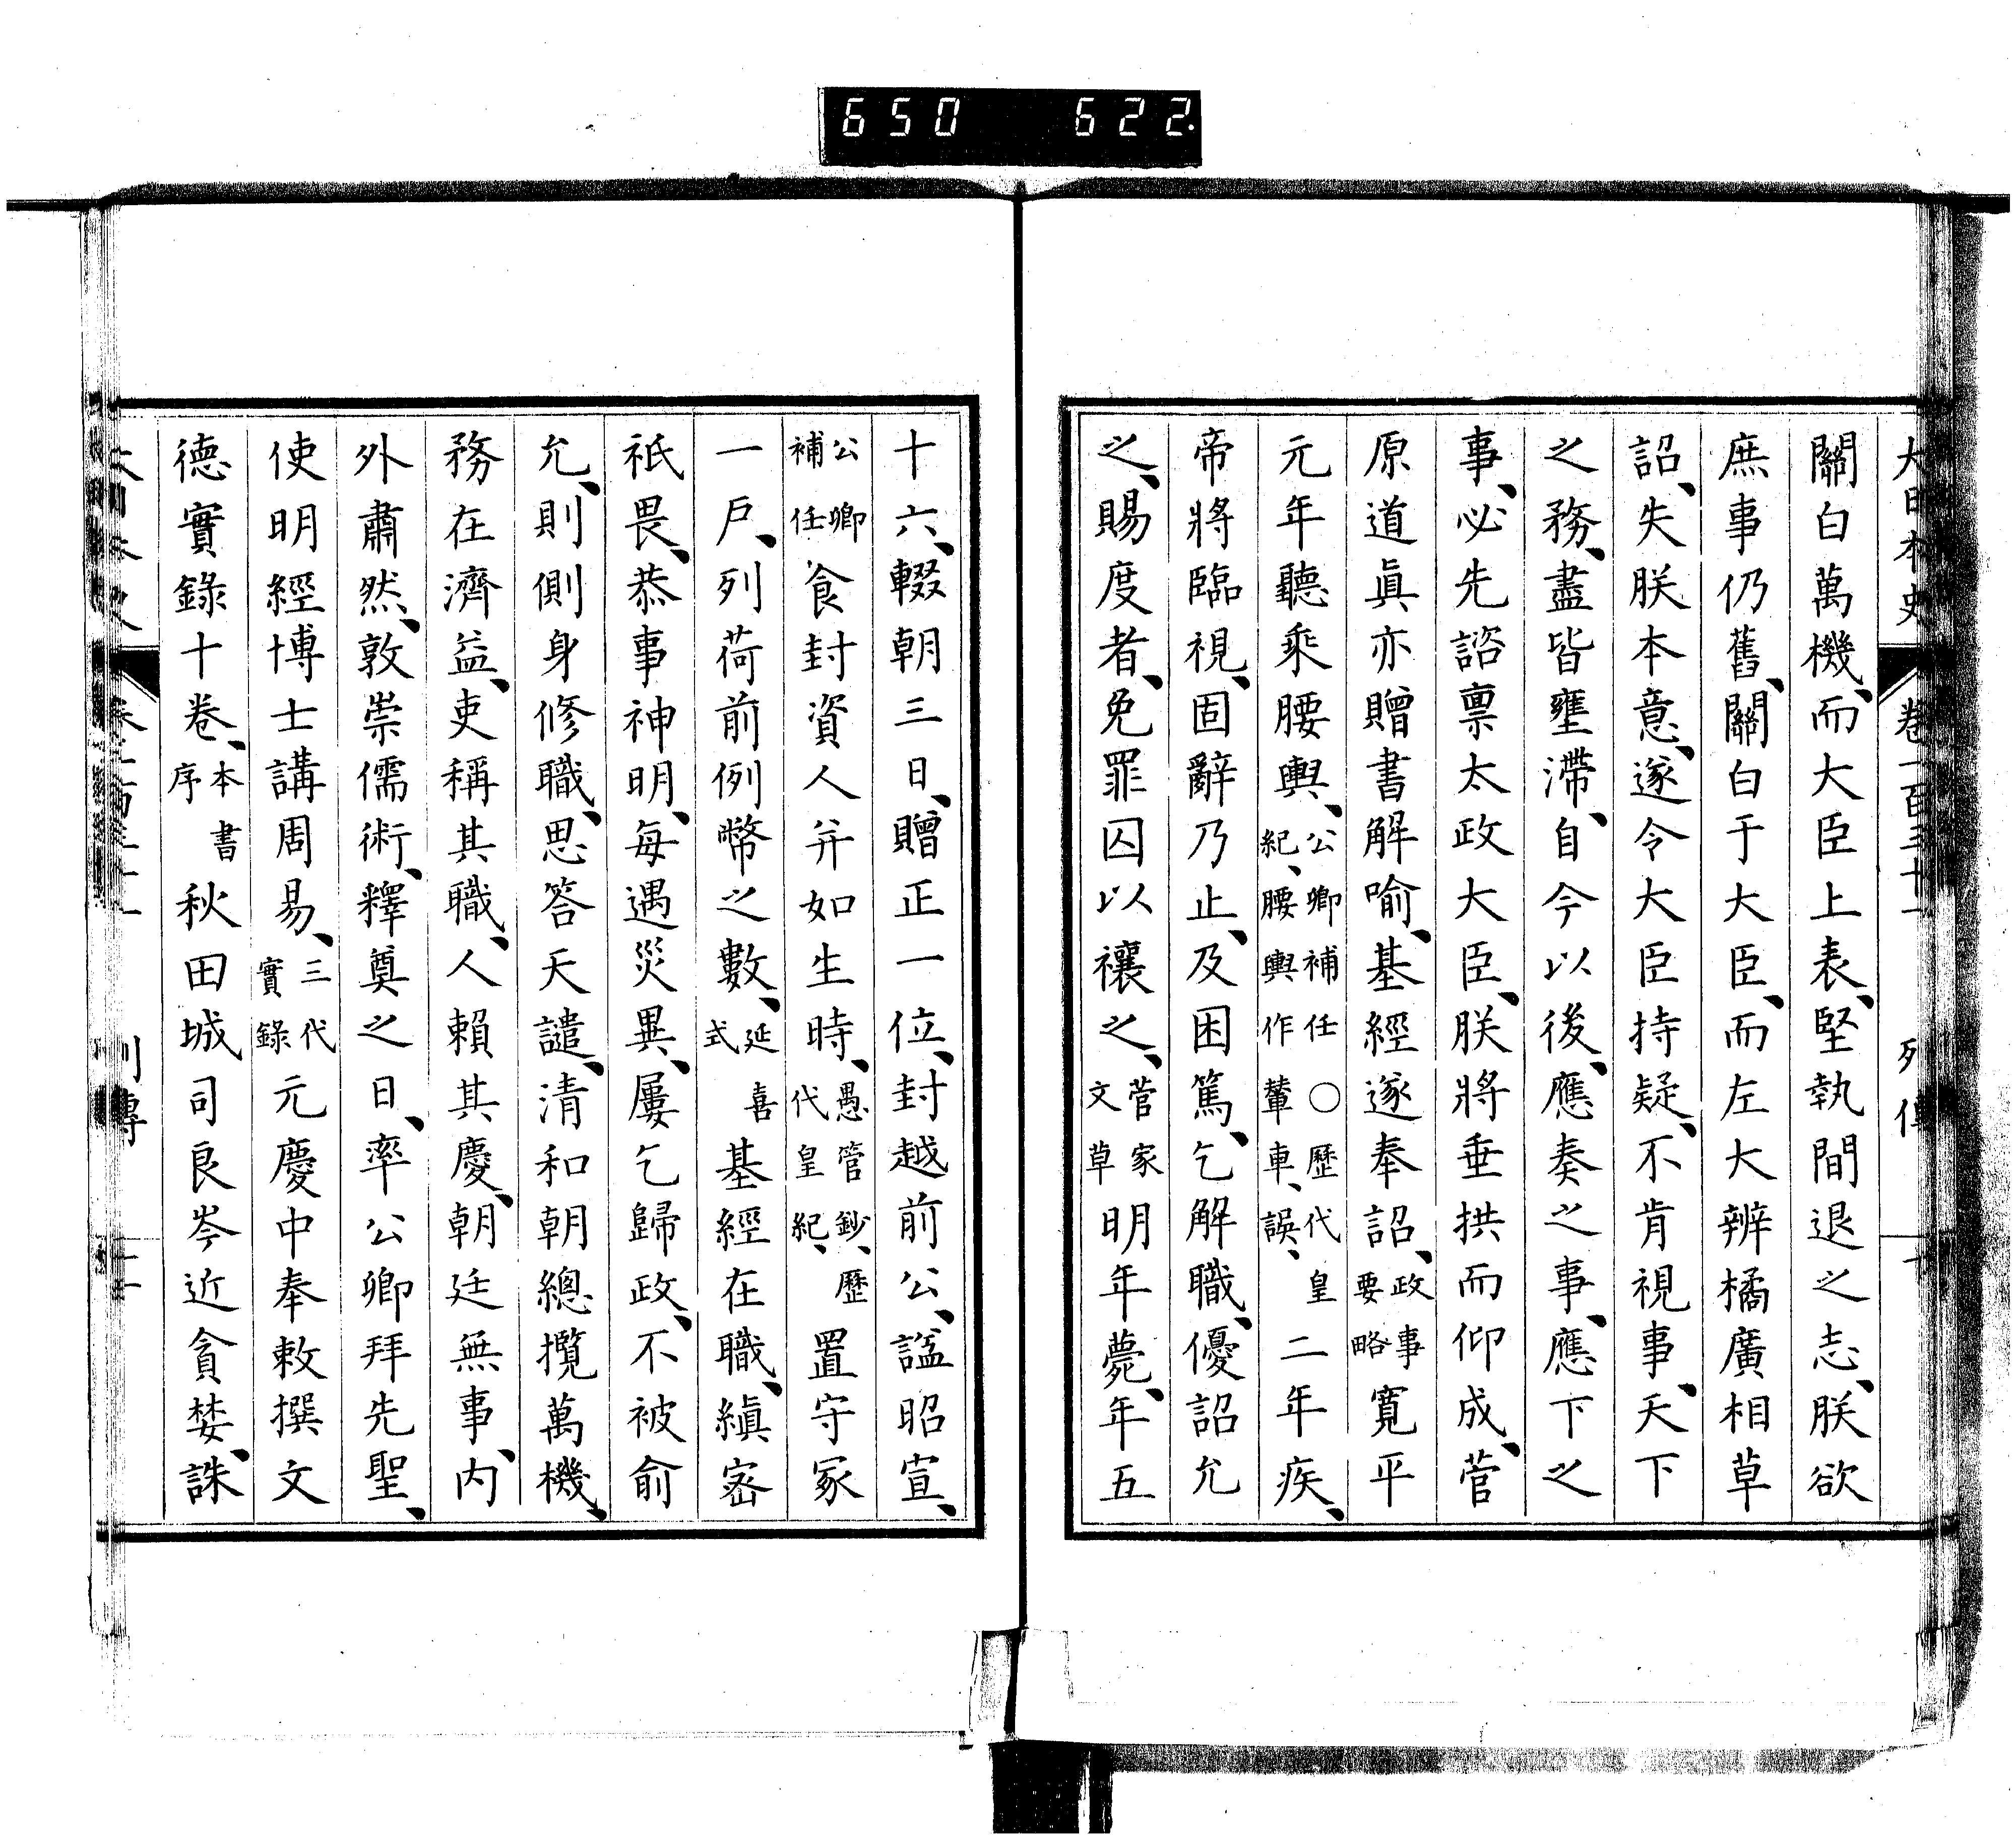 650 622.
大日本史 卷一百三十一 列傳
關白萬機、而大臣上表、堅執間退之志、朕欲
庶事仍舊、關白于大臣、而左大辨橘廣相草
詔、失朕本意、遂令大臣持疑、不肯視事、天下
之務、盡皆壅滯、自今以後、應奏之事、應下之
事、必先諮稟太政大臣、朕將垂拱而仰成、菅
原道眞亦贈書解喻、基經遂奉詔、政事要略寛平
元年聽乘腰輿、公卿補任○歷代皇紀、腰輿作輦車、誤、二年疾、
帝將臨視、固辭乃止、及困篤、乞解職、優詔允
之、賜度者、免罪囚以禳之、菅家文草明年薨、年五
十六、輟朝三日、贈正一位、封越前公、諡昭宣、
公卿補任食封資人并如生時、愚管鈔、歷代皇紀、置守冢
一戶、列荷前例幣之數、延喜式基經在職、縝密
祇畏、恭事神明、每遇災異、屢乞歸政、不被俞
允、則側身修職、思答天譴、清和朝總攬萬機、
務在濟益、吏稱其職、人賴其慶、朝廷無事、内
外肅然、敦崇儒術、釋奠之日、率公卿拜先聖、
使明經博士講周易、三代實錄元慶中奉敕撰文
德實錄十卷、本書序秋田城司良岑近貪婪、誅
列傳